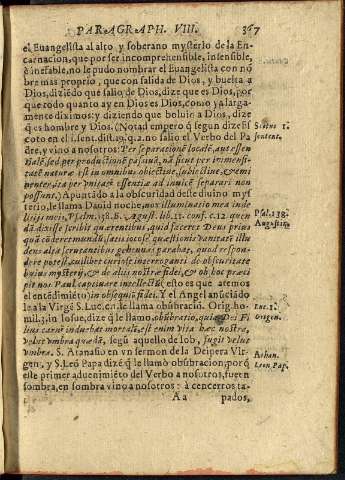 PARAGRAPH. VIII. 367
el Euangelista al alto y soberano mysterio de la En-
carnacion, que por ser incomprehensible, insensible,
è inefable, no le pudo nombrar el Euangelista con nõ
bre mas proprio, que con salida de Dios, y buelta a
Dios, diziẽdo que salio de Dios, dize que es Dios, por
que todo quanto ay en Dios es Dios, como ya larga-
mente diximos: y diziendo que boluio a Dios, dize
q̃ es hombre y Dios. (Notad empero q̃ segun dize Es
coto en el 1. sent. dist. 19. q. 2. no salio el Verbo del Pa
dre, y vino a nosotros: Per separationẽ locale, aut essen
tialẽ, sed per productionẽ passiuã, nã sicut per immensi-
tatẽ naturæ est in omnibus obiectiue, subiectiue, & emi
nenter, ita per vnitatẽ essentiæ ad inuicẽ separari non
possunt.) Apuntãdo à la obscuridad deste diuino mys
terio, le llama Dauid noche, nox illuminatio mea in de
licijs meis, Psalm. 138. S. August. lib. 11. conf. c. 12. quen
dã dixisse scribit quærentibus, quid faceret Deus prius
quã cõderet mundũ,
dens alta scrutantibus gehennas parabat, quid respon-
dere potest, cuilibet curiose interroganti de obscuritate
huius mysterij, & de alijs nostræ fidei, & ob hoc præci
pit nos Paul. captiuare intellectũ (esto es que atemos
el entẽdimiẽto) in obsequiũ fidei. Y el Angel anũciãdo
le a la Virgẽ S. Luc. c. 1. le llama obũbraciõ. Orig. ho-
mil. 3. in Iosue, dize q̃ le llamo, obũbratio, quia Dei Fi
lius carnẽ induebat mortalẽ, est enim vita hæc nostra,
velut vmbra quædã, segũ aquello de Iob, fugit velut
vmbra. S. Atanasio en vn sermon de la Deipera Vir-
gen, y S. Leõ Papa dizẽ q̃ le llamò obũbracion, por q̃
este primer aduenimiẽto del Verbo a nosotros, fue en
sombra, en sombra vino a nosotros: à cencerros ta-
Aa pados,
Scotus 1.
sentent.
Psal. 138.
Augustin.
Luc. 1.
Origen.
Athan.
Leon Pap.